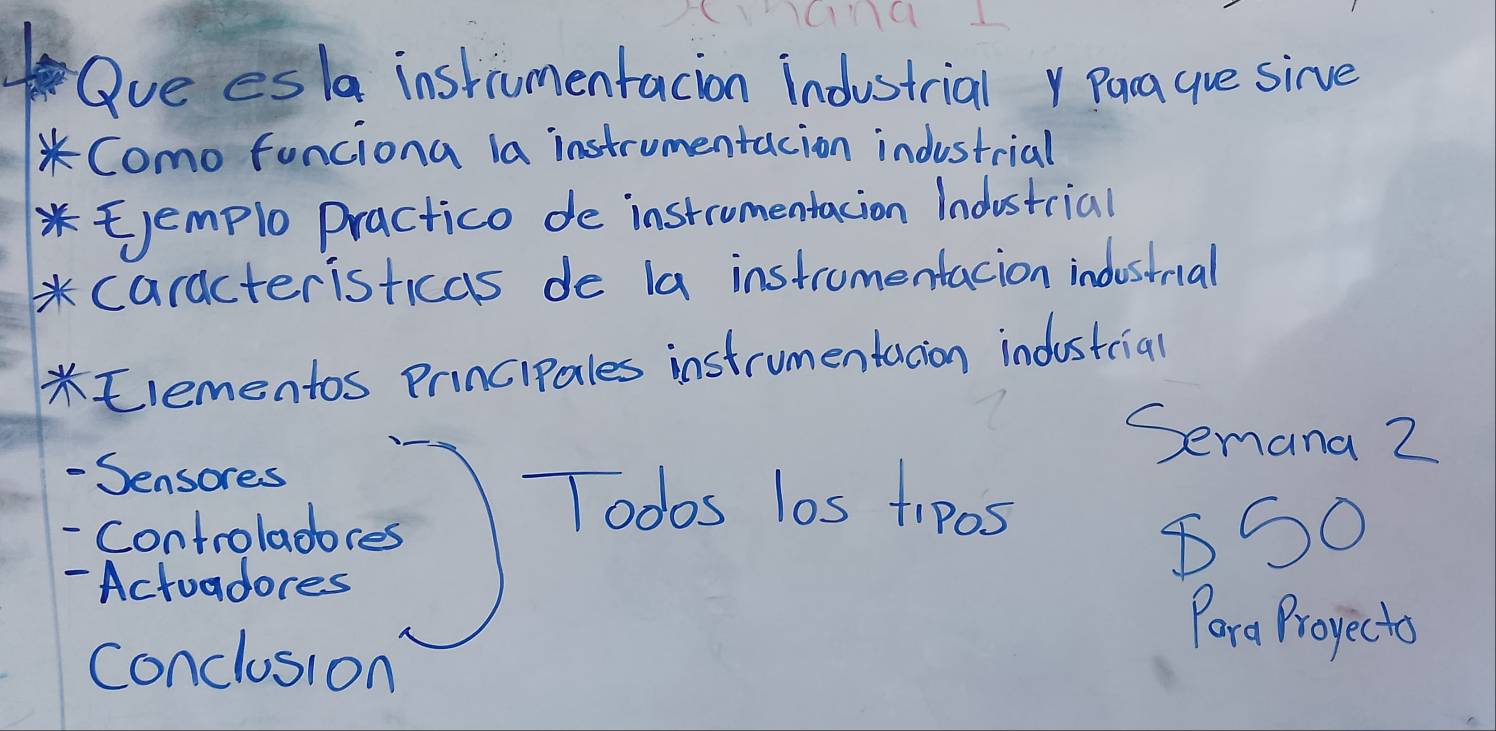 Que es la instrumentacion industrial y para que sirve
* Como funciona la instrumentacion industrial
* Ejemplo Practico de instrumentacion Industrial
* caracteristicas de la instrumentacion industrial
* Elementos Principales instrumentacion industrial
- Sensores
- Controladores
- Actuadores
Conclusion
Todos los tipos
Semana 2
$ 50
Para Proyecto